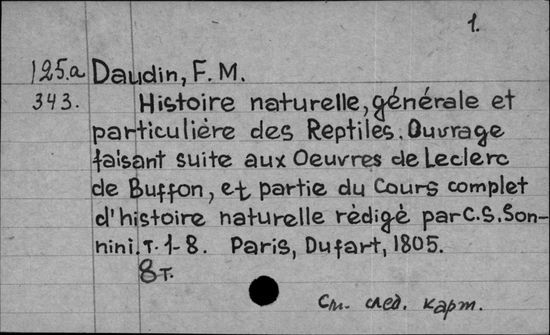 1.
125.a Daudin, F. M.
343. Histoire naturelle, générale et
particulière des Reptiles. Ouvrage
faisant suite aux Oeuvres de Leclerc
de Buffon, et partie du Cours complet
d'histoire naturelle rédigé par C. S. Son-
nini. T. 1-8. Paris, Dufart, 1805.
8 т.
См. след. карт.